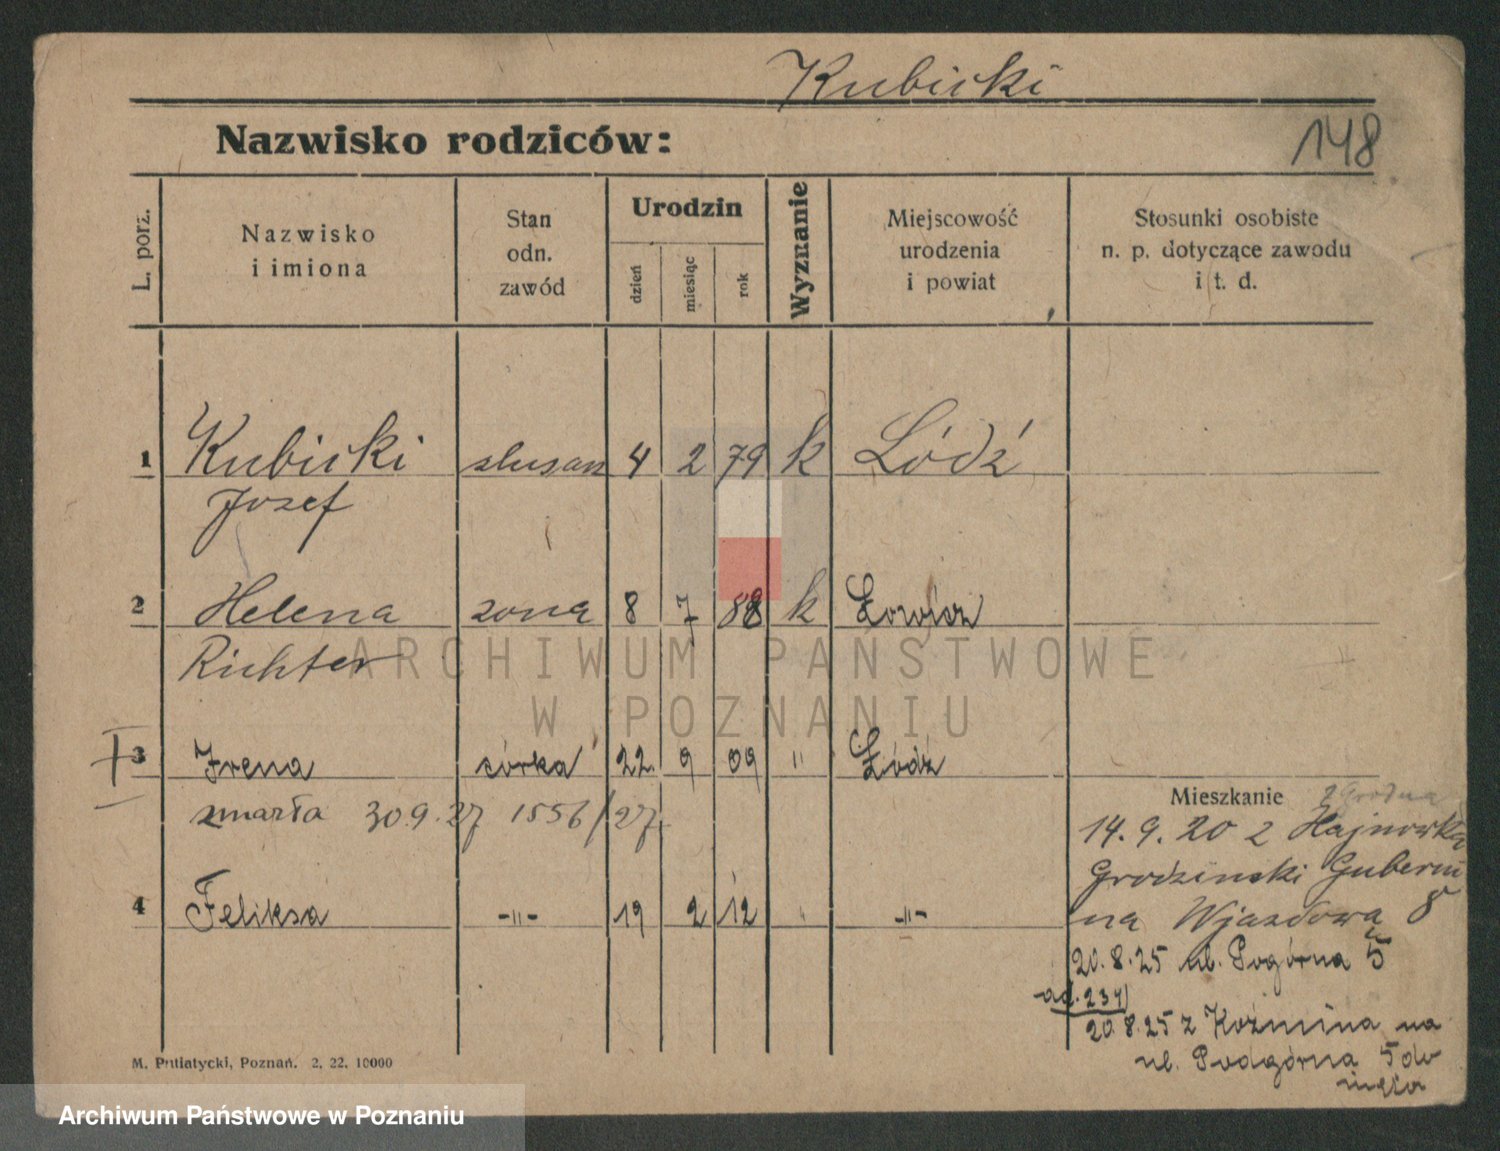 Kubicki
Nazwisko rodziców:
148
L. porz.
Nazwisko
i imiona
Stan
odn.
zawód
Urodzin
dzień
miesiąc
rok
Wyznanie
Miejscowość
urodzenia
i powiat
Stosunki osobiste
n. p. dotyczące zawodu
i t. d.
1 Kubicki ślusarz 4 2 79 k Łódź
Józef
2 Helena żona 8 7 88 k Łowicz
Richter
3 Irena córka 22. 9 09 " Łódź
zmarła 30.9.27 1556/27
4 Feliksa -"- 19 2 12 " -"-
Mieszkanie
14.9.20 z Hajnówka
Grodzinski Guberni
na Wjazdowa 8
20.8.25 ul. Pogórna 5
ad. 234)
20.8.25 z Koźmina na
ul. Podgórna 5
M. Putiatycki, Poznań. 2. 22. 10000
ARCHIWUM PAŃSTWOWE
W POZNANIU
Archiwum Państwowe w Poznaniu